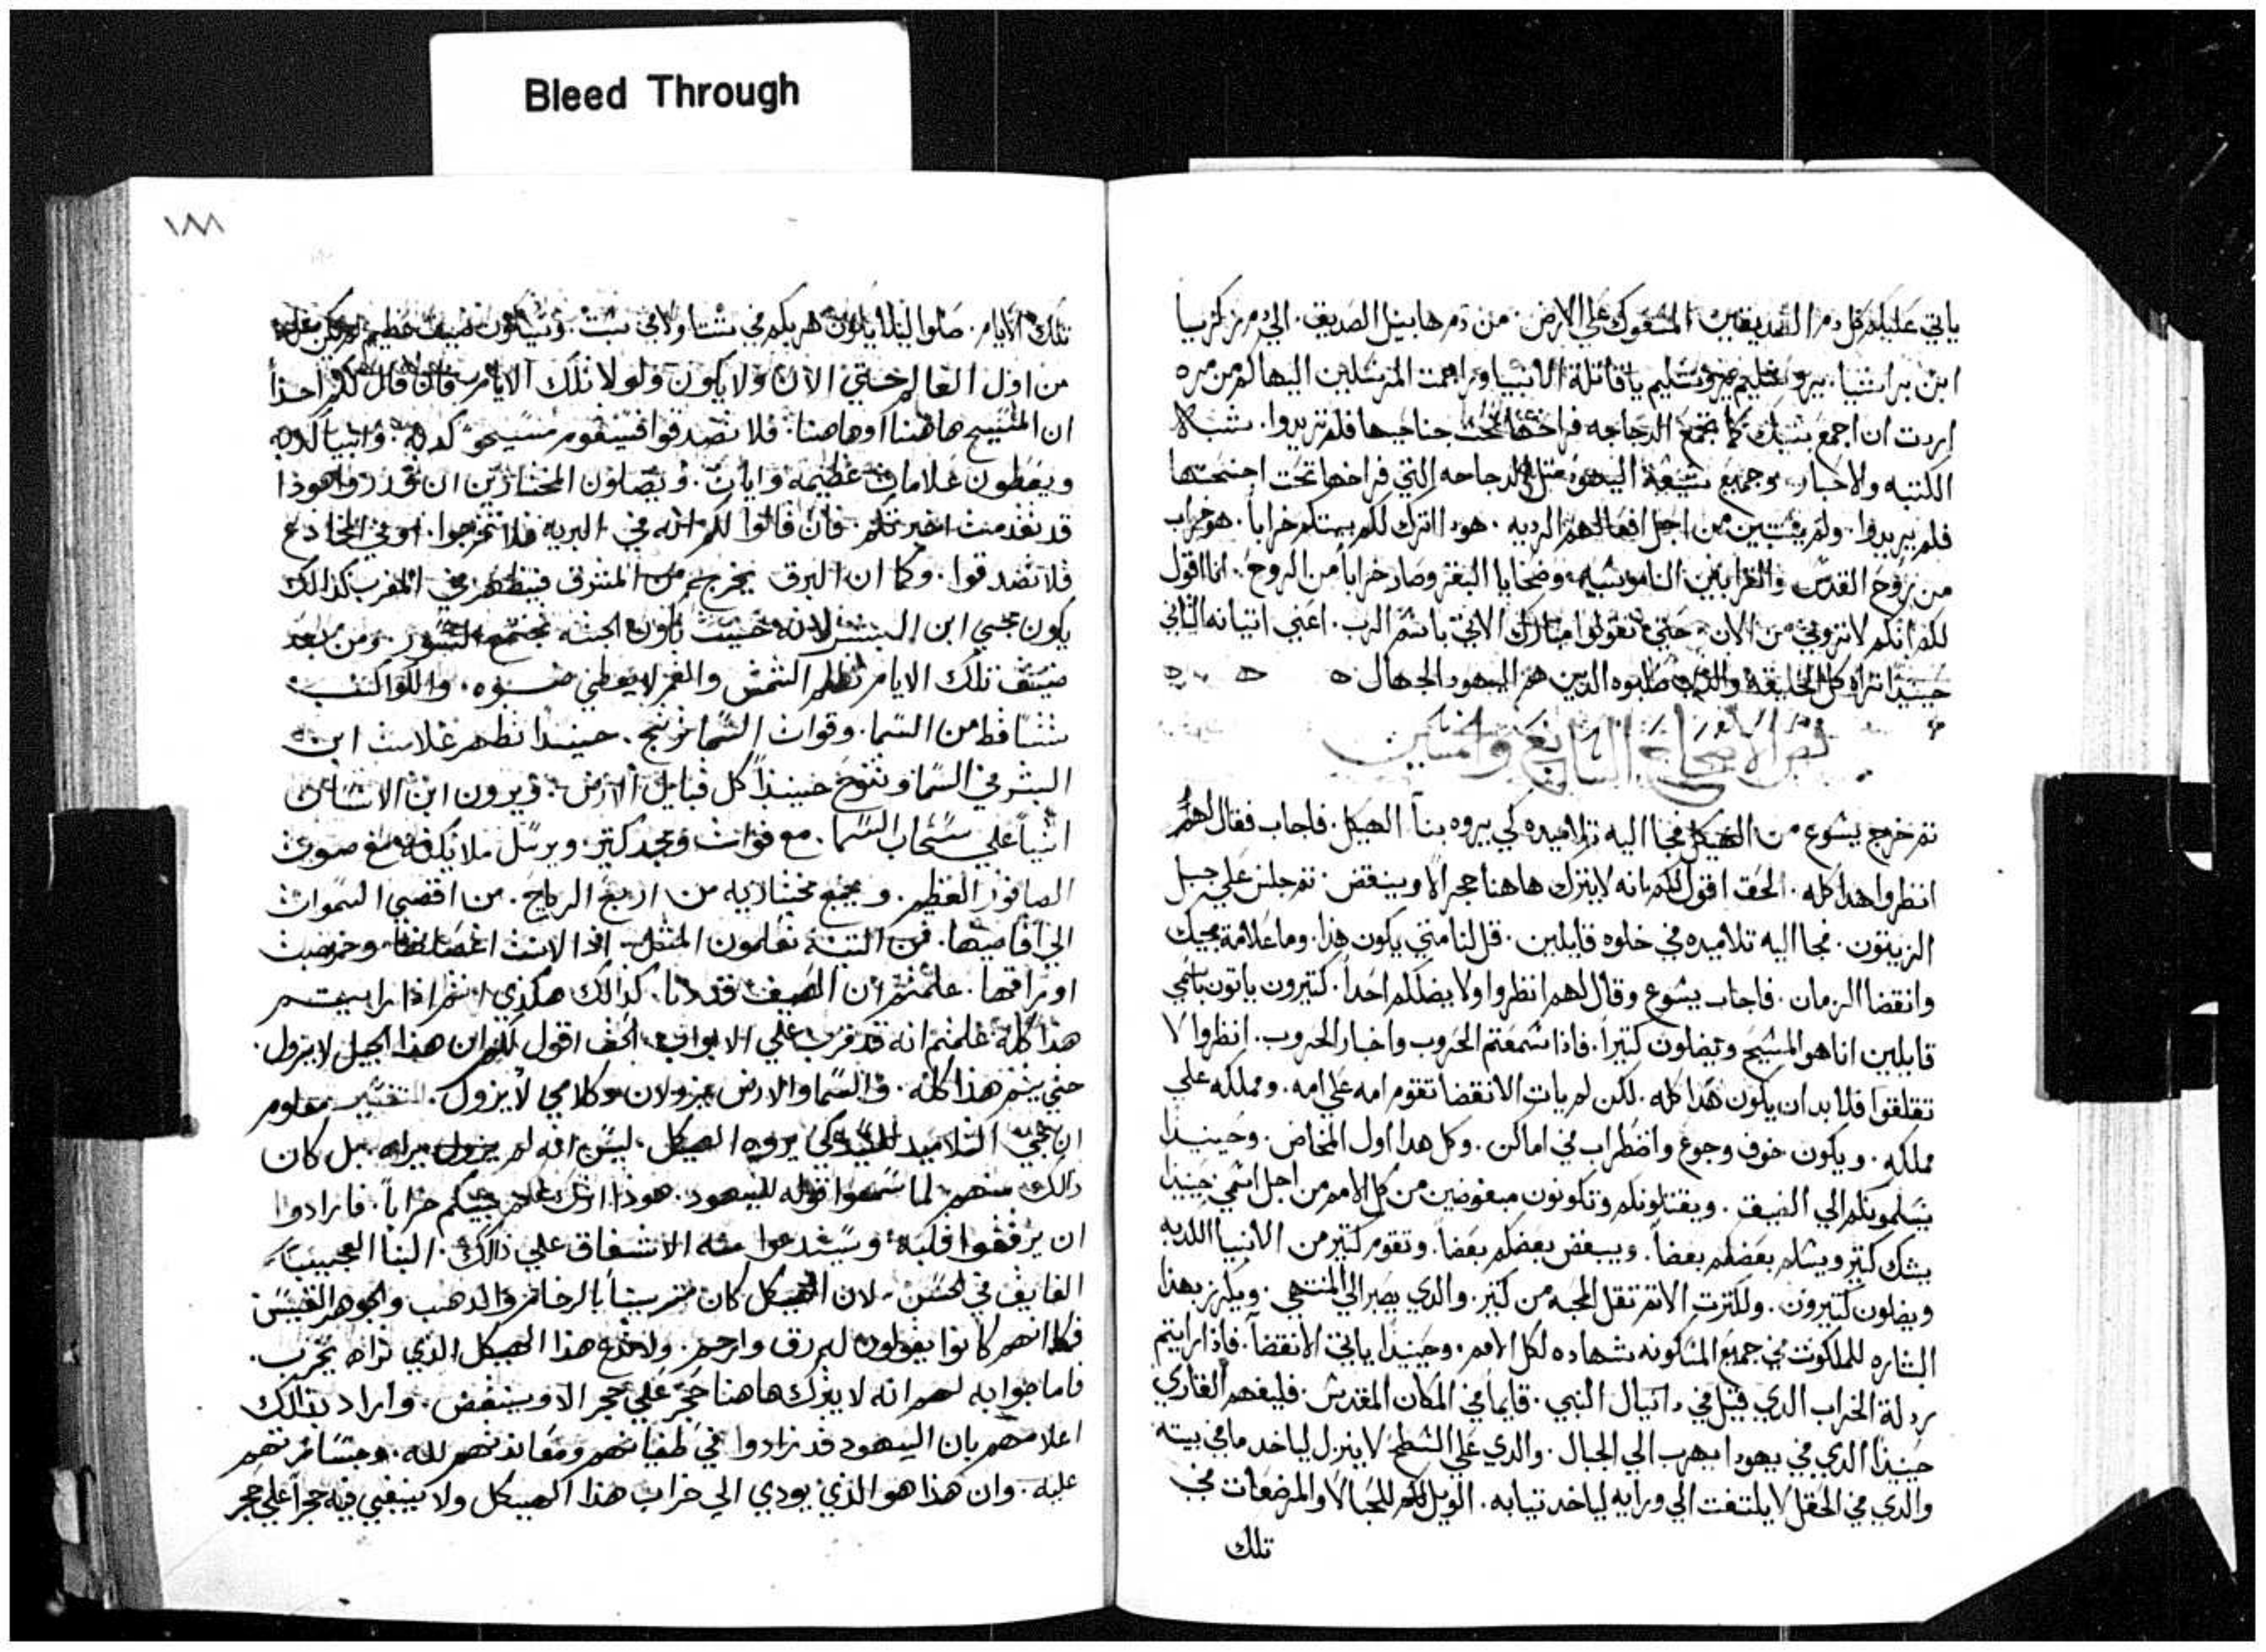 Bleed Through
ياتي عليكم كل دم الصديقين المسفوك على الارض. من دم هابيل الصديق. الي دم زكريا
ابن براشيا. يروشليم يروشليم يا قاتلة الانبيا وراجمت المرسلين اليها كم من مره
اردت ان اجمع بنيك كما تجمع الدجاجه فراخها تحت جناحيها فلم تريدوا. شبه
الكتبه والاحبار. وجميع شيعة اليهود مثل الدجاجه التي فراخها تحت اجنحتها
فلم يريدوا. ولم من اجل افعالهم الرديه. هودا اترك لكم بيتكم خراباً. هو خراب
من روح القدس والقرابين الناموسيه وضحايا البقر وصار خراباً من الروح. انا اقول
لكم انكم لا تروني من الان. حتي تقولوا مبارك الاتي باسم الرب. اعني اتيانه الثاني
حينيذا تراه كل الخليقه والذين صلبوه الدين هم اليهود الجهال ه
نص الاصحاح السابع والخمسين
ثم خرج يشوع من الهيكل فجا اليه تلاميده كي يروه بنا الهيكل. فاجاب فقال لهم
انظروا هدا كله. الحق اقول لكم انه لا يترك هاهنا حجر الا وينقض. ثم جلس علي جبل
الزيتون. فجا اليه تلاميده في خلوه قايلين. قل لنا متي يكون هذا. وما علامة مجيك
وانقضا الزمان. فاجاب يشوع وقال لهم انظروا ولا يضلكم احداً. كتيرون ياتون باسمي
قايلين انا هو المسيح ويضلون كتيراً. فاذا سمعتم الحروب واخبار الحروب. انظروا لا
تقلقوا فلا بد ان يكون هدا كله. لكن لم يات الانقضا تقوم امه علي امه. ومملكه علي
مملكه. ويكون خوف وجوع واضطراب في اماكن. وكل هدا اول المخاض. وحينيذا
يسلمونكم الي الضيق. ويقتلونكم وتكونون مبغوضين من كل الامم من اجل اسمي حينيذا
يشك كتير ويسلم بعضكم بعضاً. ويبغض بعضكم بعضاً. وتقوم كتير من الانبيا الكدبه
ويضلون كتيرون. ولكترت الاتم تقل المحبه من كتير. والدي يصبر الي المنتهي. ويكرز بهذا
البشاره للملكوت في جميع المسكونه شهاده لكل الامم. وحينيذا ياتي الانقضآ. فاذا رايتم
رذلة الخراب الدي قيل في دانيال النبي. قايما في المكان المقدس. فليفهم القاري
حينذا الدي في يهودا يهرب الي الجبال. والدي علي السطح لا ينزل لياخد ما في بيته
والدي في الحقل لا يلتفت الي ورايه لياخد تيابه. الويل للحبالا والمرضعات في
تلك
١٨٨
تلك الايام. صلوا ليلا يكون هربكم في شتا ولا في سبت. وسيكون ضيق عظيم لم يكن مثله
من اول العالم حتي الان ولا يكون ولولا تلك الايام فان قال لكم احداً
ان المسيح هاهنا او هاهنا. فلا تصدقوا فسيقوم مسيحو كدبه. وانبيا كدبه
ويعطون علامات عظيمه وايات. ويضلون المختارين ان قدروا هوذا
قد تقدمت اخبرتكم. فان قالوا لكم انه في البريه فلا تخرجوا. او في المخادع
فلا تصدقوا. وكما ان البرق يخرج من المشرق فيظهر في المغرب كذالك
يكون مجي ابن البشر لانه حيث تكون الجثه تجتمع النسور. ومن بعد
ضيق تلك الايام تظلم الشمس والقمر لا يعطي ضوه. والكواكب
تتساقط من السما. وقوات السما ترتج. حينيدا تظهر علامت ابن
البشر في السما وتنوح حينيذاً كل قبايل الارض. ويرون ابن الانسان
اتياً علي سحاب السما. مع قوات ومجد كتير. ويرسل ملايكته مع صوت
الصافور العظيم. ويجمع مختاريه من اربع الرياح. من اقصي السموات
الي اقاصيها. فمن التينه تعلمون المثل. اذا لانت اغصانها وخرجت
اوراقها. علمتم ان الصيف قد دنا. كذالك هكذي انتم اذا رايتم
هذا كله علمتم انه قد قرب علي الابواب. الحق اقول لكم ان هذا الجيل لا يزول.
حتي يتم هذا كله. والسما والارض يزولان وكلامي لا يزول. التفسير معلوم
ان مجي التلاميد للسيد كي يروه الهيكل. ليس انه لم يراه. بل كان
دالك منهم لما سمعوا قوله لليهود. هوذا اترك لكم بيتكم خراباً. فارادوا
ان يرققوا قلبه ويستدعوا منه الاشفاق علي ذالك. البنا العجيب
الفايق في الحسن. لان الهيكل كان مزيناً بالرخام والدهب والجوهر النفيس
فكانهم كانوا يقولون له ارق وارحم. ولا تدع هذا الهيكل الذي تراه يخرب.
فاما جوابه لهم انه لا يترك هاهنا حجر علي حجر الا وينقض. واراد بذالك
اعلامهم بان اليهود قد زادوا في طغيانهم ومعاندتهم لله. وجسارتهم
عليه. وان هذا هو الذي يودي الي خراب هذا الهيكل ولا يبقي فيه حجراً علي حجر